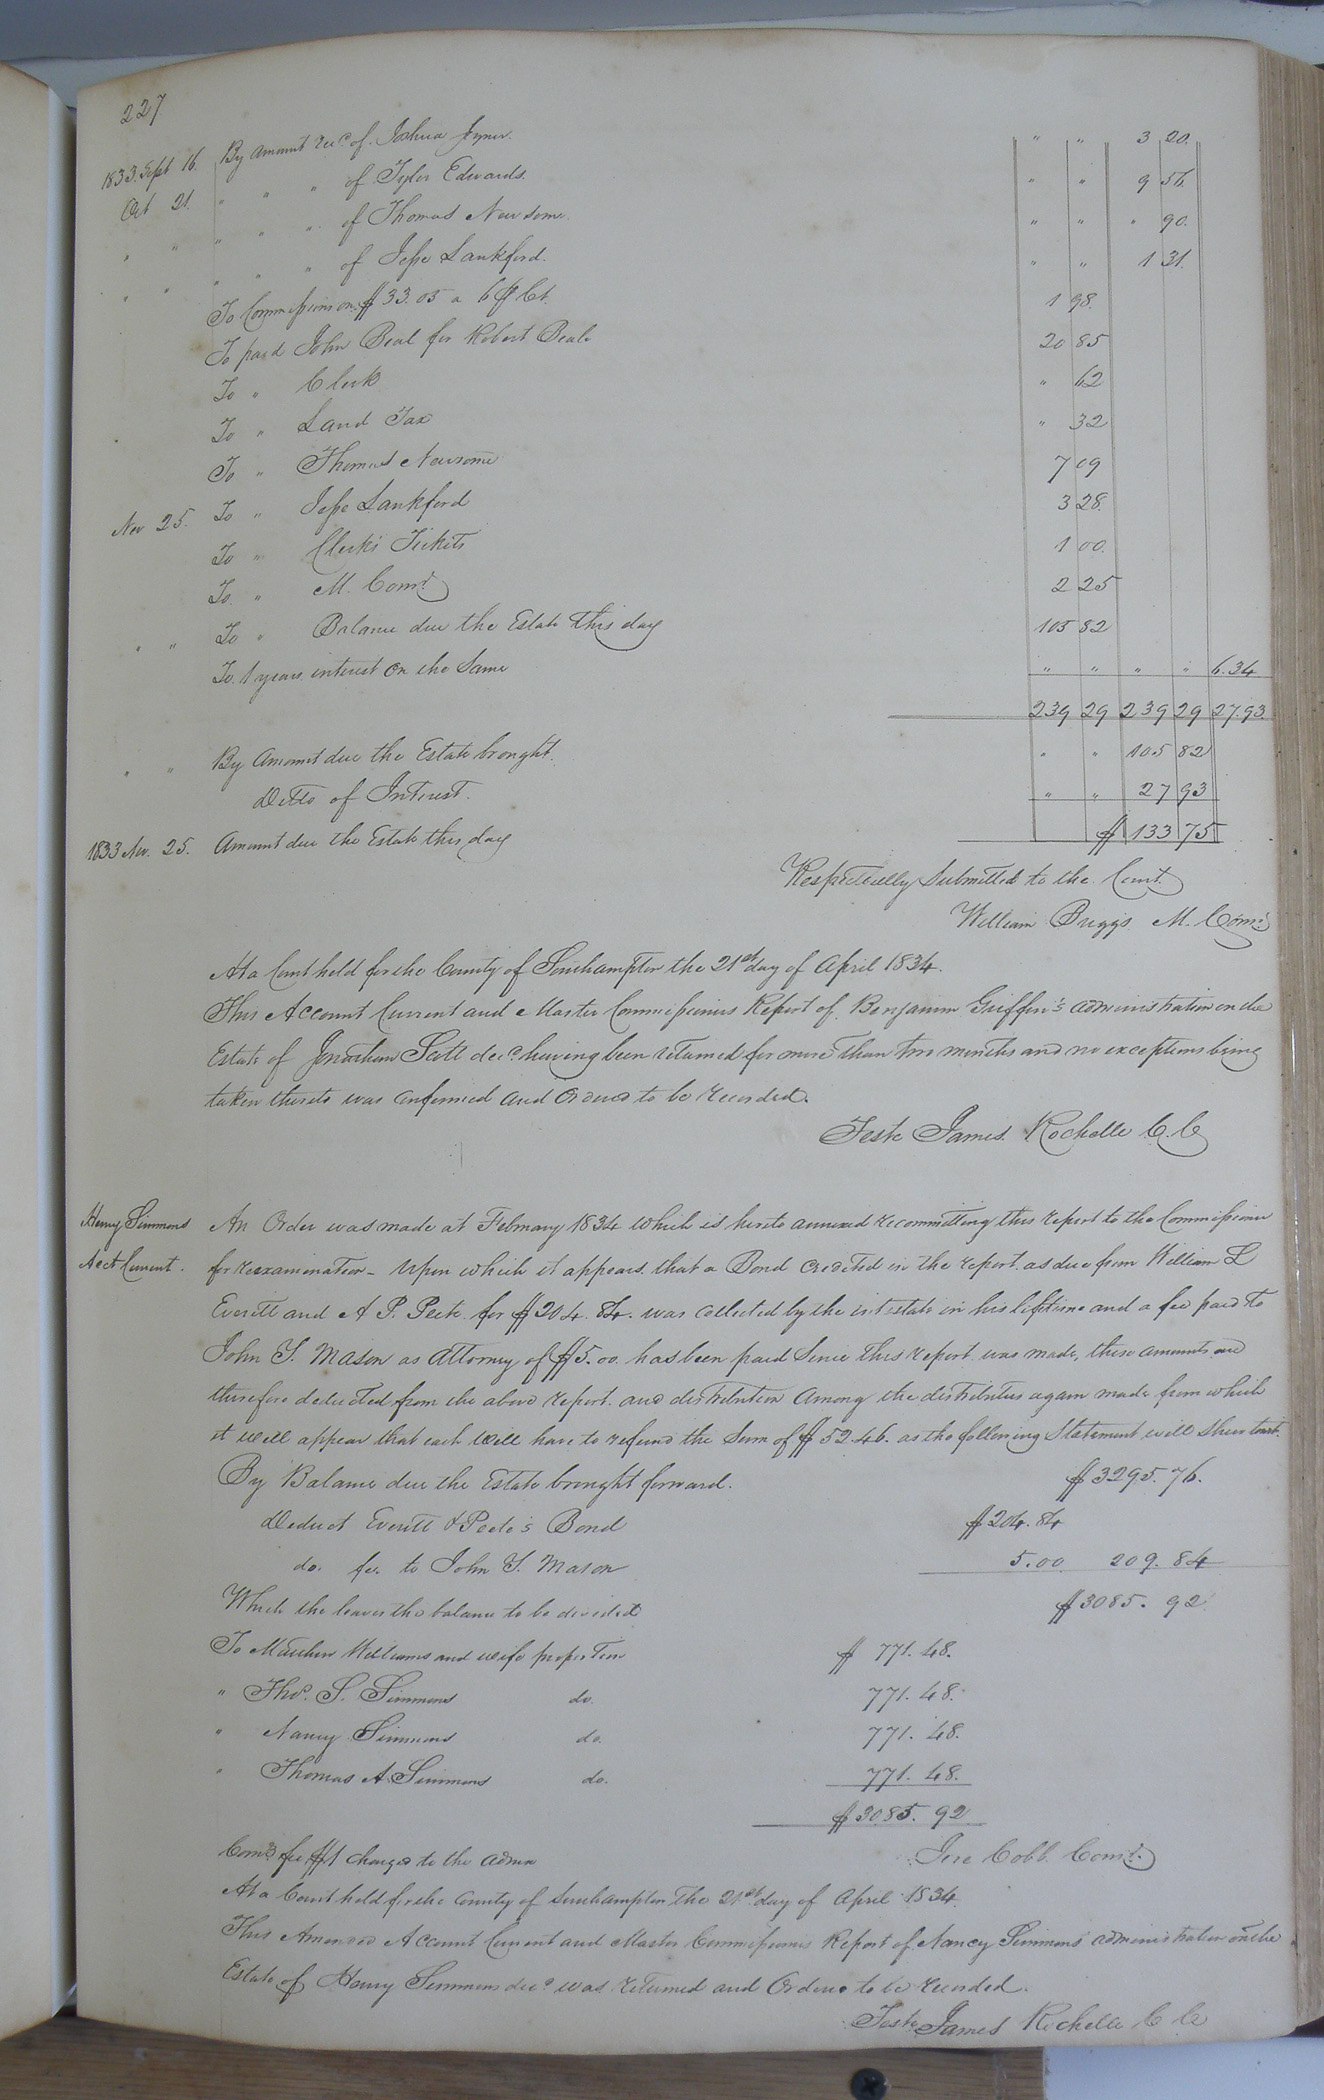 227
1833. Sept 16. By amount rec.d of Joshua Joyner. " " 3 20.
Oct 21. " " " of Tyler Edwards. " " 9 56.
" " " " " of Thomas Newsome. " " " 90.
" " " " " of Jesse Lankford. " " 1 31.
To Commissions on $33.05 a 6 p Ct. 1 98.
To paid John Beal for Robert Beale 20 85
To " Clerk " 62
To " Land Tax " 32
To " Thomas Newsome 7 09
Nov 25. To " Jesse Lankford 3 28.
To " Clerk's Tickets 1 00.
To. " M. Comr. 2 25
" " To " Balance due the Estate this day 105 82
To. 1 years interest on the Same " " " " 6.34
239 29 239 29 27.93.
" " By Amount due the Estate brought. " " 105 82
Ditto of Interest. " " 27 93
1833 Nov. 25. Amount due the Estate this day $ 133 75
Respectfully Submitted to the Court.
William Briggs. M. Comr.
At a Court held for the County of Southampton the 21st day of April 1834.
This Account Current and Master Commissioners Report of Benjamin Griffin's administration on the
Estate of Jonathan Scott decd. having been returned for more than two months and no exceptions being
taken thereto was confirmed and Ordered to be recorded.
Teste James Rochelle C. C
Henry Simmons An Order was made at February 1834 which is hereto annexed recommitting this report to the Commissioner
Acct Current. for reexamination – Upon which it appears that a Bond credited in the report as due from William L
Everett and A P. Peete for $204.84. was collected by the intestate in his lifetime and a fee paid to
John Y. Mason as attorney of $5.00 has been paid Since this report was made, these amounts are
therefore deducted from the above report. and distribution among the distributees again made from which
it will appear that each Will have to refund the Sum of $52.46. as the following Statement will Shew to wit.
By Balance due the Estate brought forward. $3295.76.
Deduct Everett & Peete's Bond $204.84
do. fee to John Y. Mason 5.00 209.84
Which the leaves the balance to be divided $3085.92
To Matthew Williams and wife proportion $ 771.48.
" Thos. S. Simmons do. 771.48.
" Nancy Simmons do. 771.48.
" Thomas A. Simmons do. 771.48.
$3085.92
Comr. fee $1 charged to the admx
Jere Cobb Comr.
At a Court held for the County of Southampton the 21st day of April 1834.
This Amended Account Current and Master Commissioners Report of Nancy Simmons' administration on the
Estate of Henry Simmons decd was returned and Ordered to be recorded.
Teste James Rochelle C C